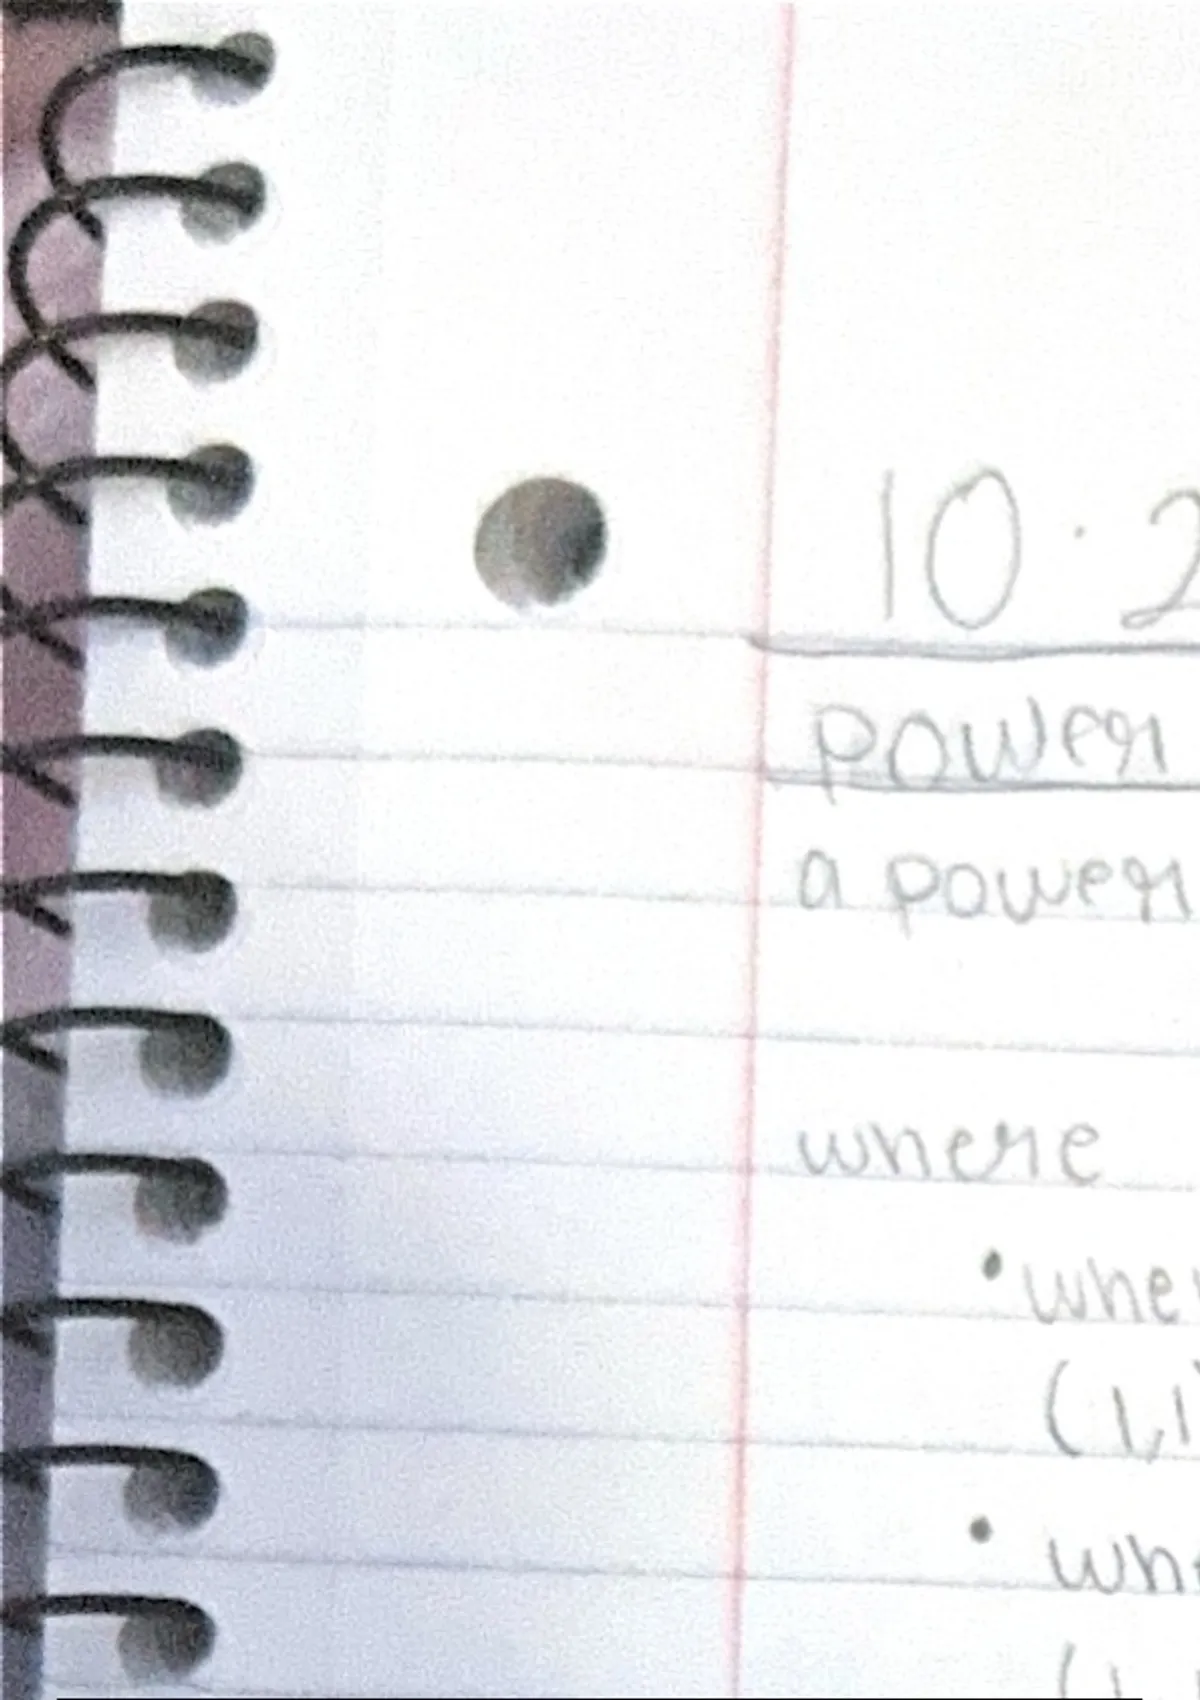 10.2
power
a power
where
• when
(1,1)
• whe
(1,